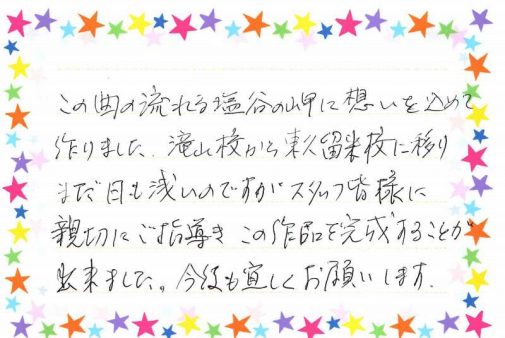 この曲の流れる塩谷の岬に想いを込めて
作りました。滝山校から東久留米校に移り
まだ日も浅いのですがスタッフ皆様に
親切にご指導き この作品を完成することが
出来ました。今後も宜しくお願いします。